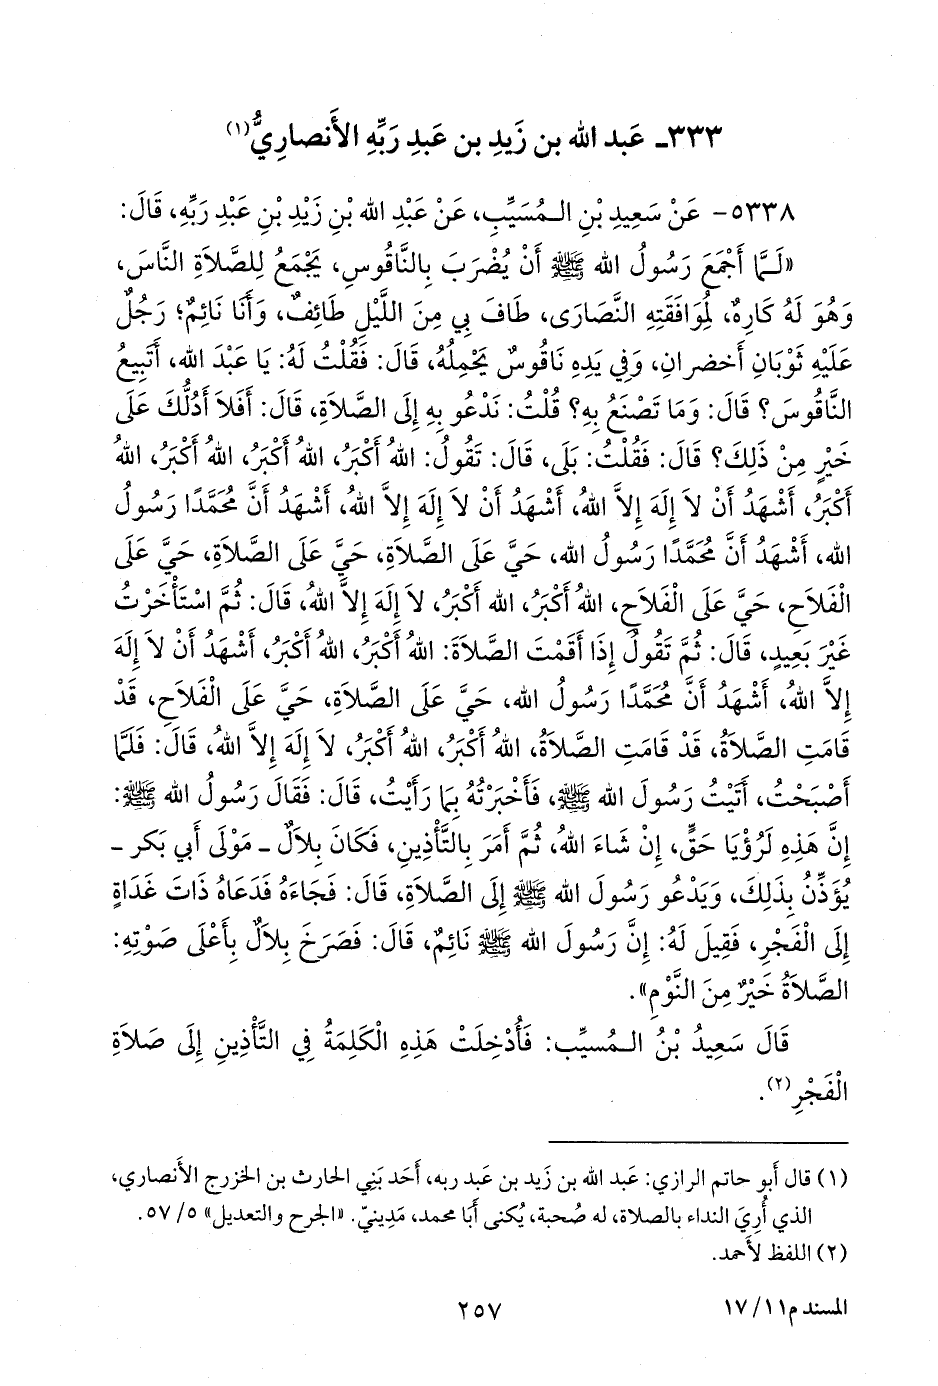 ٣٣٣ـ عَبد الله بن زَيدِ بن عَبدِ رَبِّهِ الأَنصارِيُّ(١)
٥٣٣٨- عَنْ سَعِيدِ بْنِ الـمُسَيِّبِ، عَنْ عَبْدِ الله بْنِ زَيْدِ بْنِ عَبْدِ رَبِّهِ، قَالَ:
«لَـمَّا أَجْمَعَ رَسُولُ الله ﷺ أَنْ يُضْرَبَ بِالنَّاقُوسِ، يَجْمَعُ لِلصَّلاَةِ النَّاسَ،
وَهُوَ لَهُ كَارِهٌ، لِمُوَافَقَتِهِ النَّصَارَى، طَافَ بِي مِنَ اللَّيْلِ طَائِفٌ، وَأَنَا نَائِمٌ؛ رَجُلٌ
عَلَيْهِ ثَوْبَانِ أَخضرانِ، وَفِي يَدِهِ نَاقُوسٌ يَحْمِلُهُ، قَالَ: فَقُلْتُ لَهُ: يَا عَبْدَ الله، أَتَبِيعُ
النَّاقُوسَ؟ قَالَ: وَمَا تَصْنَعُ بِهِ؟ قُلْتُ: نَدْعُو بِهِ إِلَى الصَّلاَةِ، قَالَ: أَفَلاَ أَدُلُّكَ عَلَى
خَيْرٍ مِنْ ذَلِكَ؟ قَالَ: فَقُلْتُ: بَلَى، قَالَ: تَقُولُ: اللهُ أَكْبَرُ، اللهُ أَكْبَرُ، اللهُ أَكْبَرُ، اللهُ
أَكْبَرُ، أَشْهَدُ أَنْ لاَ إِلَهَ إِلاَّ اللهُ، أَشْهَدُ أَنْ لاَ إِلَهَ إِلاَّ اللهُ، أَشْهَدُ أَنَّ مُحَمَّدًا رَسُولُ
الله، أَشْهَدُ أَنَّ مُحَمَّدًا رَسُولُ الله، حَيَّ عَلَى الصَّلاَةِ، حَيَّ عَلَى الصَّلاَةِ، حَيَّ عَلَى
الْفَلاَحِ، حَيَّ عَلَى الْفَلاَحِ، اللهُ أَكْبَرُ، الله أَكْبَرُ، لاَ إِلَهَ إِلاَّ اللهُ، قَالَ: ثُمَّ اسْتَأْخَرْتُ
غَيْرَ بَعِيدٍ، قَالَ: ثُمَّ تَقُولُ إِذَا أَقَمْتَ الصَّلاَةَ: اللهُ أَكْبَرُ، اللهُ أَكْبَرُ، أَشْهَدُ أَنْ لاَ إِلَهَ
إِلاَّ اللهُ، أَشْهَدُ أَنَّ مُحَمَّدًا رَسُولُ الله، حَيَّ عَلَى الصَّلاَةِ، حَيَّ عَلَى الْفَلاَحِ، قَدْ
قَامَتِ الصَّلاَةُ، قَدْ قَامَتِ الصَّلاَةُ، اللهُ أَكْبَرُ، اللهُ أَكْبَرُ، لاَ إِلَهَ إِلاَّ اللهُ، قَالَ: فَلَمَّا
أَصْبَحْتُ، أَتَيْتُ رَسُولَ الله ﷺ، فَأَخْبَرْتُهُ بِمَا رَأَيْتُ، قَالَ: فَقَالَ رَسُولُ الله ﷺ:
إِنَّ هَذِهِ لَرُؤْيَا حَقٌّ، إِنْ شَاءَ اللهُ، ثُمَّ أَمَرَ بِالتَّأْذِينِ، فَكَانَ بِلاَلٌ ـ مَوْلَى أَبِي بَكر ـ
يُؤَذِّنُ بِذَلِكَ، وَيَدْعُو رَسُولَ الله ﷺ إِلَى الصَّلاَةِ، قَالَ: فَجَاءَهُ فَدَعَاهُ ذَاتَ غَدَاةٍ
إِلَى الْفَجْرِ، فَقِيلَ لَهُ: إِنَّ رَسُولَ الله ﷺ نَائِمٌ، قَالَ: فَصَرَخَ بِلاَلٌ بِأَعْلَى صَوْتِهِ:
الصَّلاَةُ خَيْرٌ مِنَ النَّوْمِ».
قَالَ سَعِيدُ بْنُ الـمُسيِّب: فَأُدْخِلَتْ هَذِهِ الْكَلِمَةُ فِي التَّأْذِينِ إِلَى صَلاَةِ
الْفَجْرِ(٢).
(١) قال أَبو حاتم الرازي: عَبد الله بن زَيد بن عَبد ربه، أَحَد بَنِي الحارث بن الخزرج الأَنصاري،
الذي أُرِيَ النداء بالصلاة، له صُحبة، يُكنى أَبَا محمد، مَدِينيّ. «الجرح والتعديل» ٥/ ٥٧.
(٢) اللفظ لأَحمد.
المسند م١١/ ١٧
٢٥٧